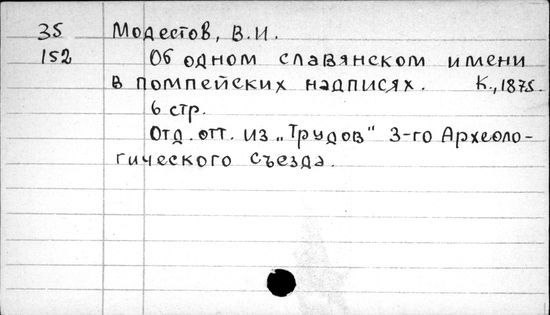 35 Модестов, В.И.
152 Об одном славянском имени
в помпейских надписях. К., 1875.
6 стр.
Отд. отт. из „Трудов" 3-го Археоло-
гического съезда.